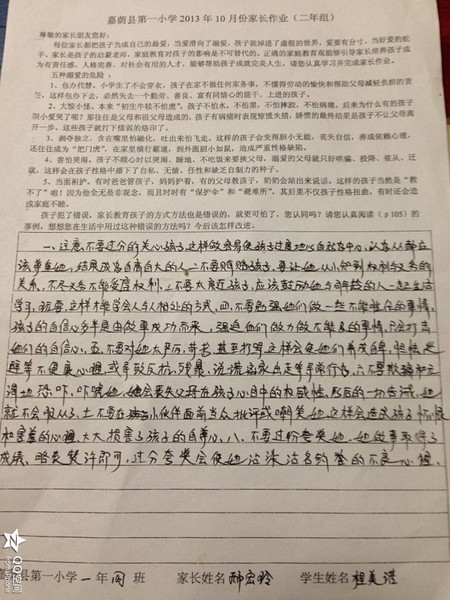 嘉荫县第一小学2013年10月份家长作业（二年组）
尊敬的家长朋友您好：
每位家长都把孩子当成自己的最爱，当爱滑向了溺爱，孩子就掉进了虚假的世界，爱要有分寸，当好爱的舵
手。家长是孩子的启蒙老师，家庭教育对孩子的影响是不可替代的。正确的家庭教育观能够引导家长把孩子培养成为
有责任感、人格完善、对社会有用的人才，能够帮助孩子成就完美人生。请您认真学习并完成家长作业。
五种溺爱的危险：
1、包办代替。小学生了不会穿衣，孩子在家不做任何家务事，不懂得劳动的愉快和帮助父母减轻负担的责
任，这样包办下去，必然失去一个勤劳、善良、富有同情心的能干、上进的孩子。
2、大惊小怪。本来“初生牛犊不怕虎”，孩子不怕水，不怕黑，不怕摔跤，不怕病痛。后来为什么有的孩子
胆小爱哭了呢？那往往是父母和祖父母造成的，孩子有病痛时表现惊慌失措，娇惯的最终结果是孩子不让父母离
开一步。这些孩子就打下懦弱的烙印了。
3、剥夺独立。含在嘴里怕融化，吐出来怕飞走。这样的孩子会变得胆小无能，丧失自信，养成依赖心理，
还往往成为“把门虎”，在家里横行霸道，到外面胆小如鼠，造成严重性格缺陷。
4、害怕哭闹。孩子不顺心时以哭闹、睡地、不吃饭来要挟父母。溺爱的父母就只好哄骗、投降、依从、迁
就。这样会在孩子性格中播下了自私、无情、任性和缺乏自制力的种子。
5、当面袒护。有时爸爸管孩子，妈妈护着，有的父母教孩子，奶奶会站出来说话。这样的孩子当然是“教
不了”啦！因为他全无是非观念，而且时时有“保护伞”和“避难所”，其后果不仅孩子性格扭曲，有时还会造
成家庭不睦。
孩子犯了错误，家长教育孩子的方式方法也是错误的，就更可怕了，您认同吗？请您认真阅读（p105）的
事例，想想您在生活中用过这种错误的方法吗？今后该怎样改进。
一、注意不要过分的关心孩子，这样做容易使孩子过度地以自我为中心，认为人都应
该尊重她，结果成为自高自大的人。二、不要贿赂孩子，要让她从小知到权利与义务的
关系，不尽义务不能享受权利。三、不要太亲近孩子，应该鼓励她与同龄的人一起生活
学习、玩耍，这样才能学会人与人相处的方式。四、不要勉强他们做一些不能胜任的事情，
孩子的自信心多半是由做事成功而来，强迫他们做力做不能及的事情，只会打击
她们的自信心。五、不要对她太严厉、苛求、甚至打骂，这样会使她们养成自卑、胆怯、逃
避等不健康心理，或导致反抗、残暴、说谎、离家出走等异常行为。六、不要欺骗和无
谓地恐吓，吓唬她，她会丧失父母在孩子心目中的权威性，以后的一切告诫，她
就不会服从了。七、不要在小伙伴面前当众批评或嘲笑她，这样会造成孩子怀恨
和害羞的心理，大大损害了孩子的自尊心。八、不要过分夸奖她，她做事取得了
成绩，略表赞许即可，过分夸奖会使她沾染沽名钓誉的不良心理。
县第一小学 一年 班 家长姓名 学生姓名 程美